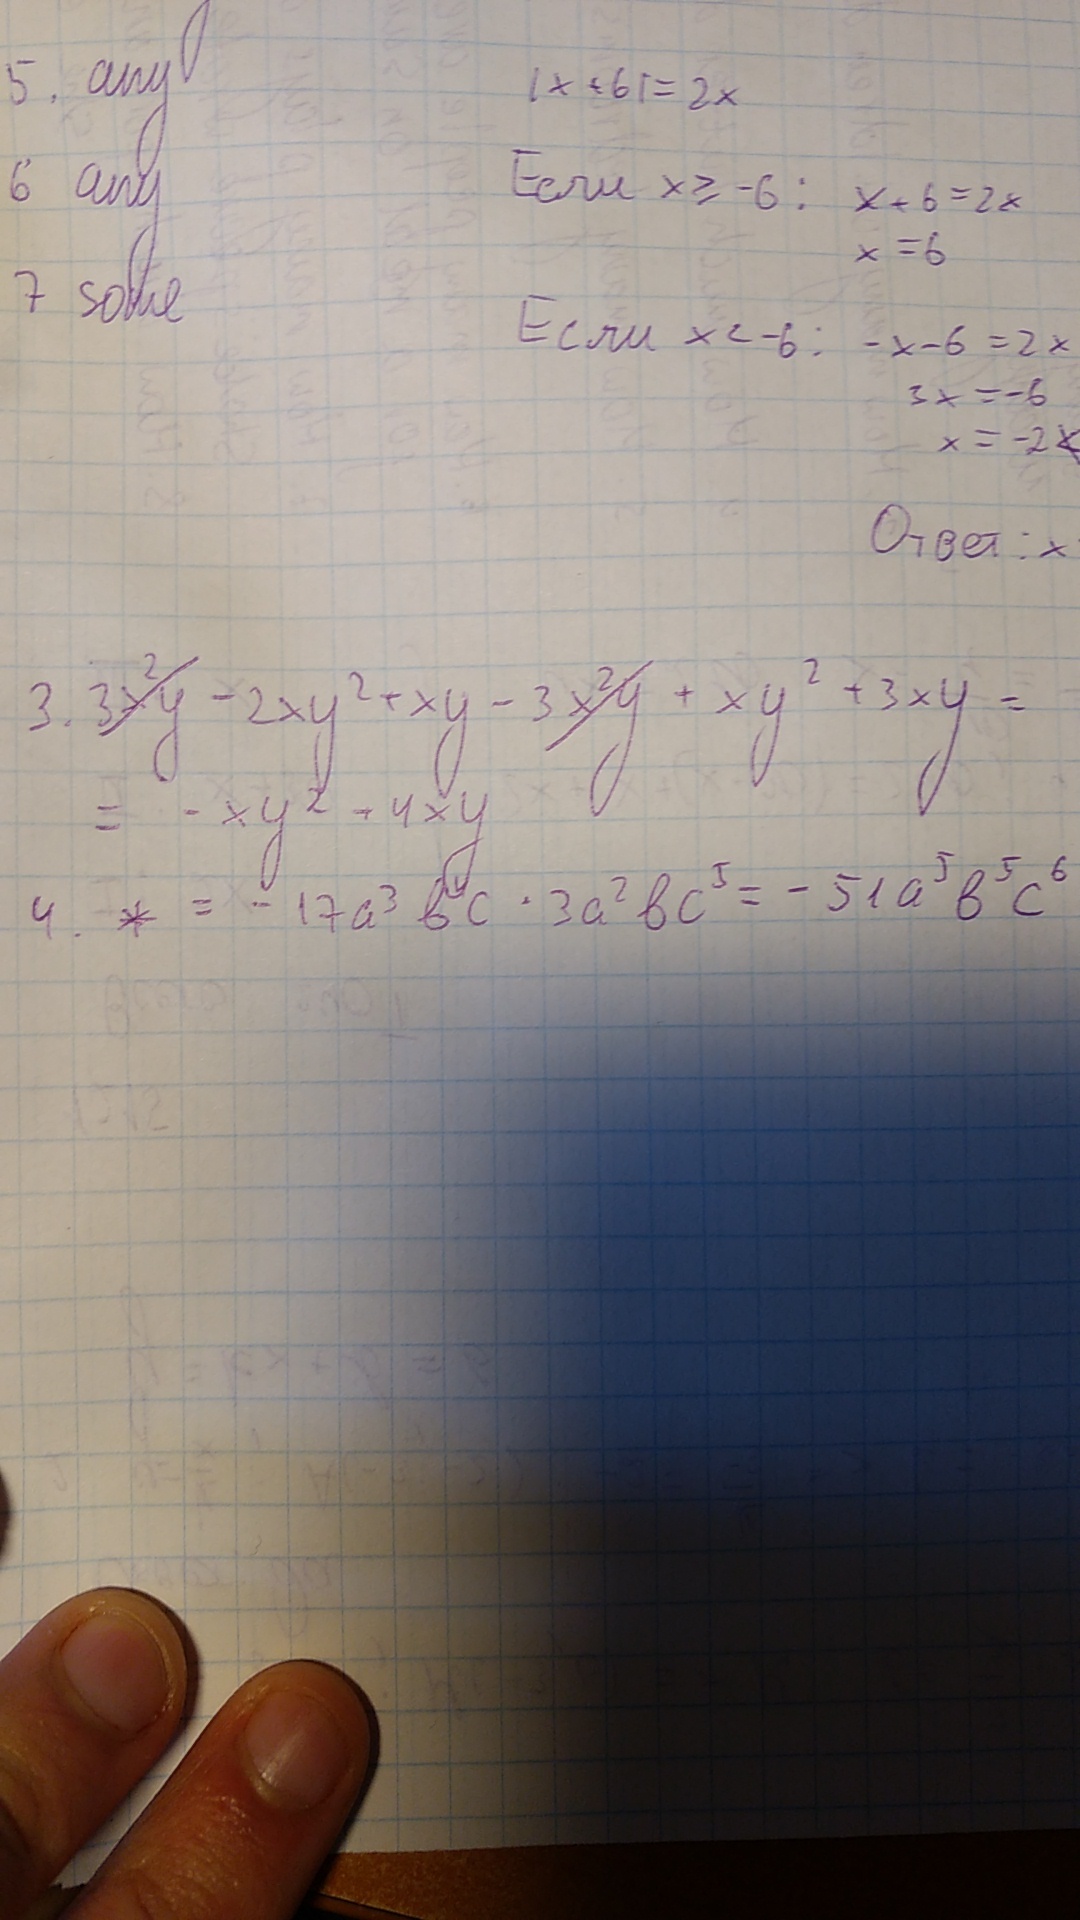 5. any
6 any
7 some
|x+6|=2x
Если x≥-6: x+6=2x
x=6
Если x<-6: -x-6=2x
3x=-6
x=-2
Ответ: x
3. 3x²y - 2xy² + xy - 3x²y + xy² + 3xy =
= -xy² + 4xy
4. * = -17a³b⁴c · 3a²bc⁵ = -51a⁵b⁵c⁶